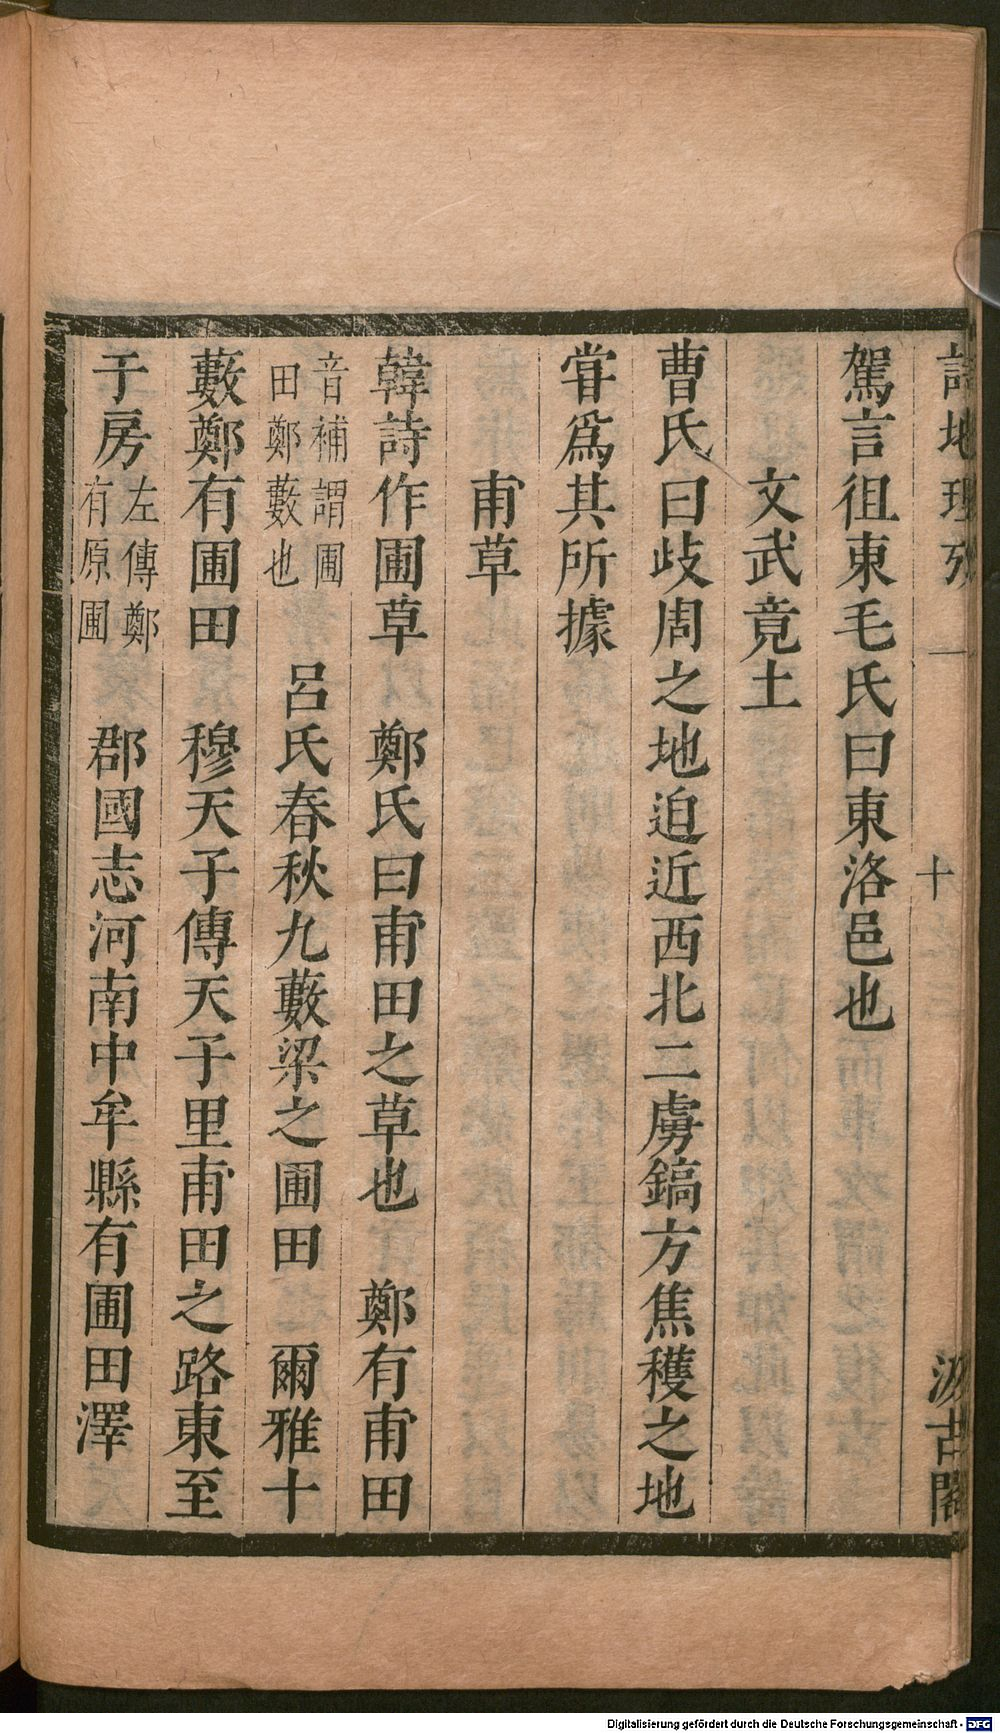 詩地理攷 十 汲古閣
駕言徂東毛氏曰東洛邑也
文武竟土
曹氏曰歧周之地迫近西北二虜鎬方焦穫之地
甞爲其所據
甫草
韓詩作圃草 鄭氏曰甫田之草也 鄭有甫田
音補謂圃
田鄭藪也
呂氏春秋九藪梁之圃田 爾雅十
藪鄭有圃田 穆天子傳天子里甫田之路東至
于房
左傳鄭
有原圃
郡國志河南中牟縣有圃田澤
Digitalisierung gefördert durch die Deutsche Forschungsgemeinschaft - DFG